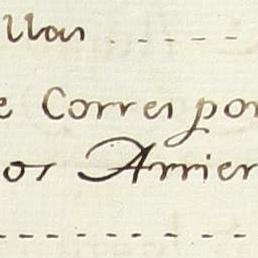 llas
e Corres por
os Arrier